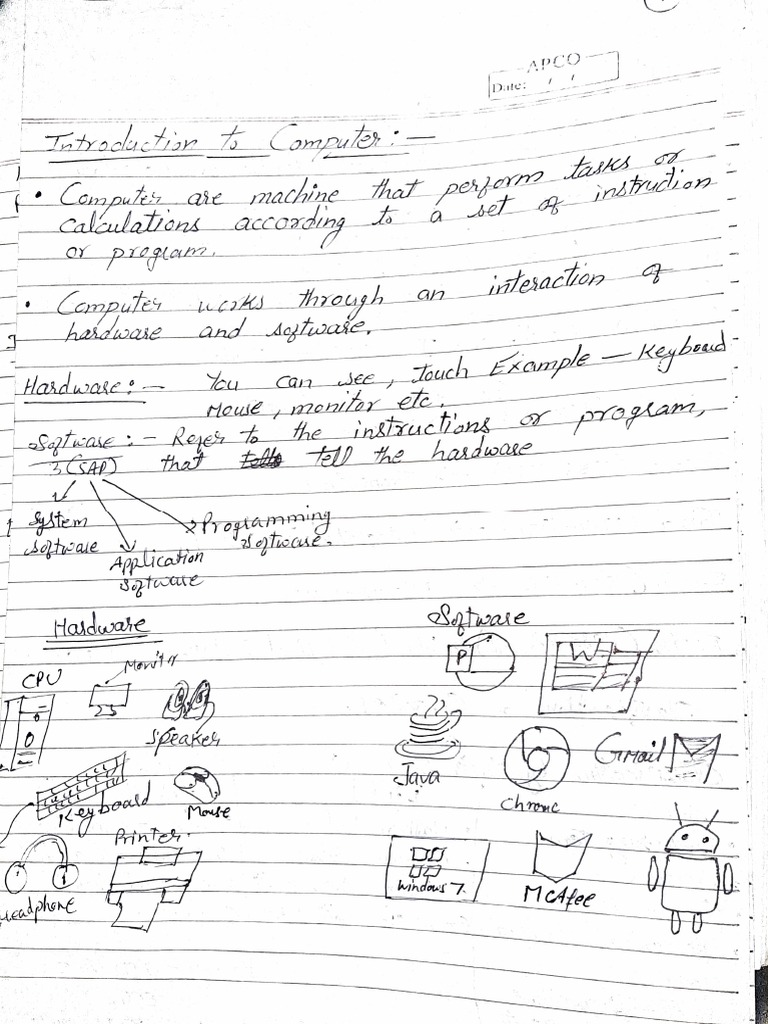 APCO
Date: / /
Introduction to Computer:—
• Computer are machine that perform tasks or
calculations according to a set of instruction
or program.
• Computer works through an interaction of
hardware and software.
Hardware:— You can see, touch Example — Keyboard
Mouse, monitor etc.
Software:— Refer to the instructions or program,
3(SAP) that tell the hardware
System
Software
Application
Software
Programming
Software.
Hardware
CPU
Monitor
Speaker
Keyboard
Mouse
Printer
Headphone
Software
P
W
Java
Chrome
GMail
Windows 7
McAfee